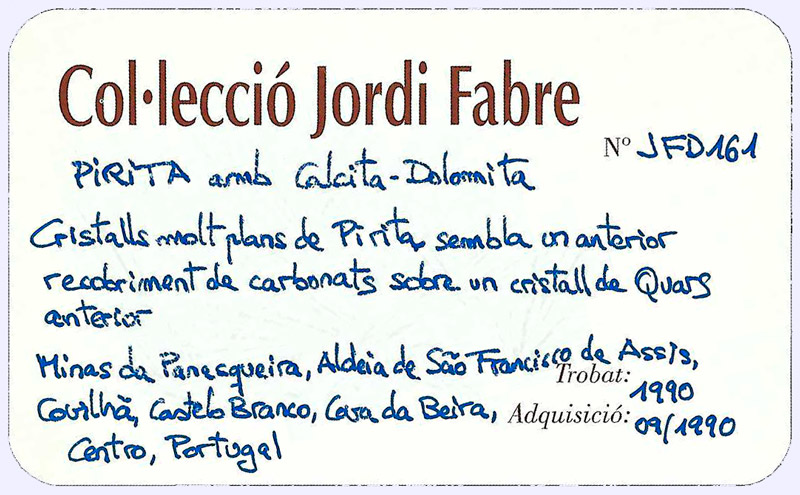 Col·lecció Jordi Fabre
Nº JFD161
PiRiTA amb Calcita-Dolomita
Cristalls molt plans de Pirita, sembla un anterior
recobriment de carbonats sobre un cristall de Quars
anterior
Minas da Panasqueira, Aldeia de São Francisco de Assis,
Trobat: 1990
Covilhã, Castelo Branco, Cova da Beira,
Adquisició: 09/1990
Centro, Portugal